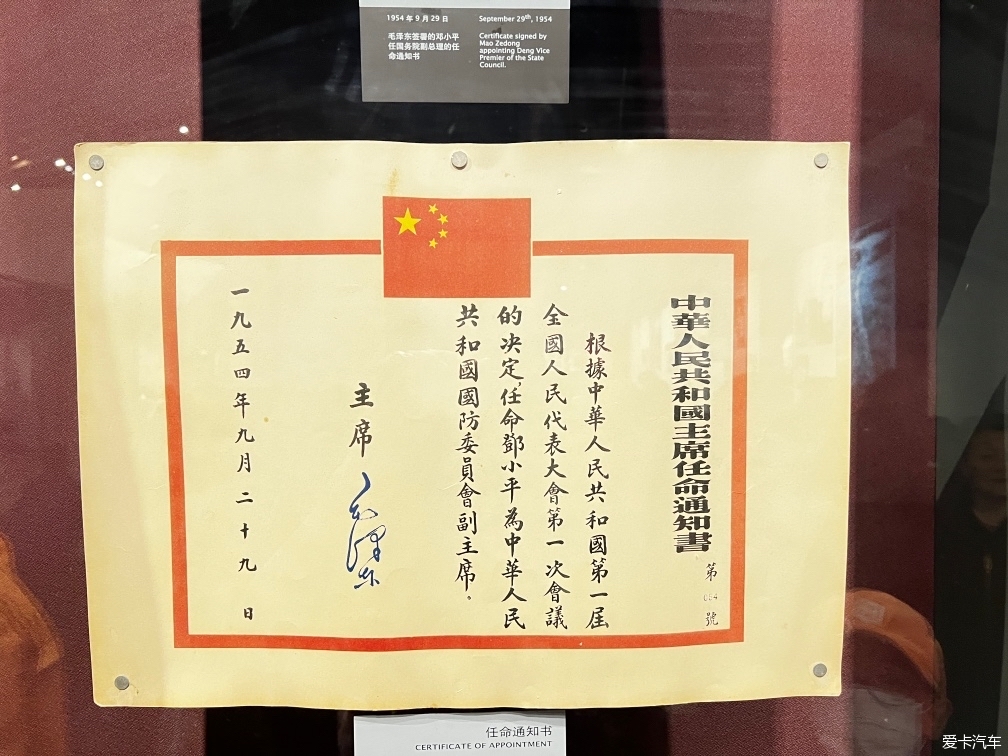 1954 年 9 月 29 日
毛泽东签署的邓小平
任国务院副总理的任
命通知书
September 29th, 1954
Certificate signed by
Mao Zedong
appointing Deng Vice
Premier of the State
Council.
中華人民共和國主席任命通知書
第
號
根據中華人民共和國第一屆
全國人民代表大會第一次會議
的决定，任命鄧小平為中華人民
共和國國防委員會副主席。
主席 毛澤东
一九五四年九月二十九日
任命通知书
CERTIFICATE OF APPOINTMENT
爱卡汽车